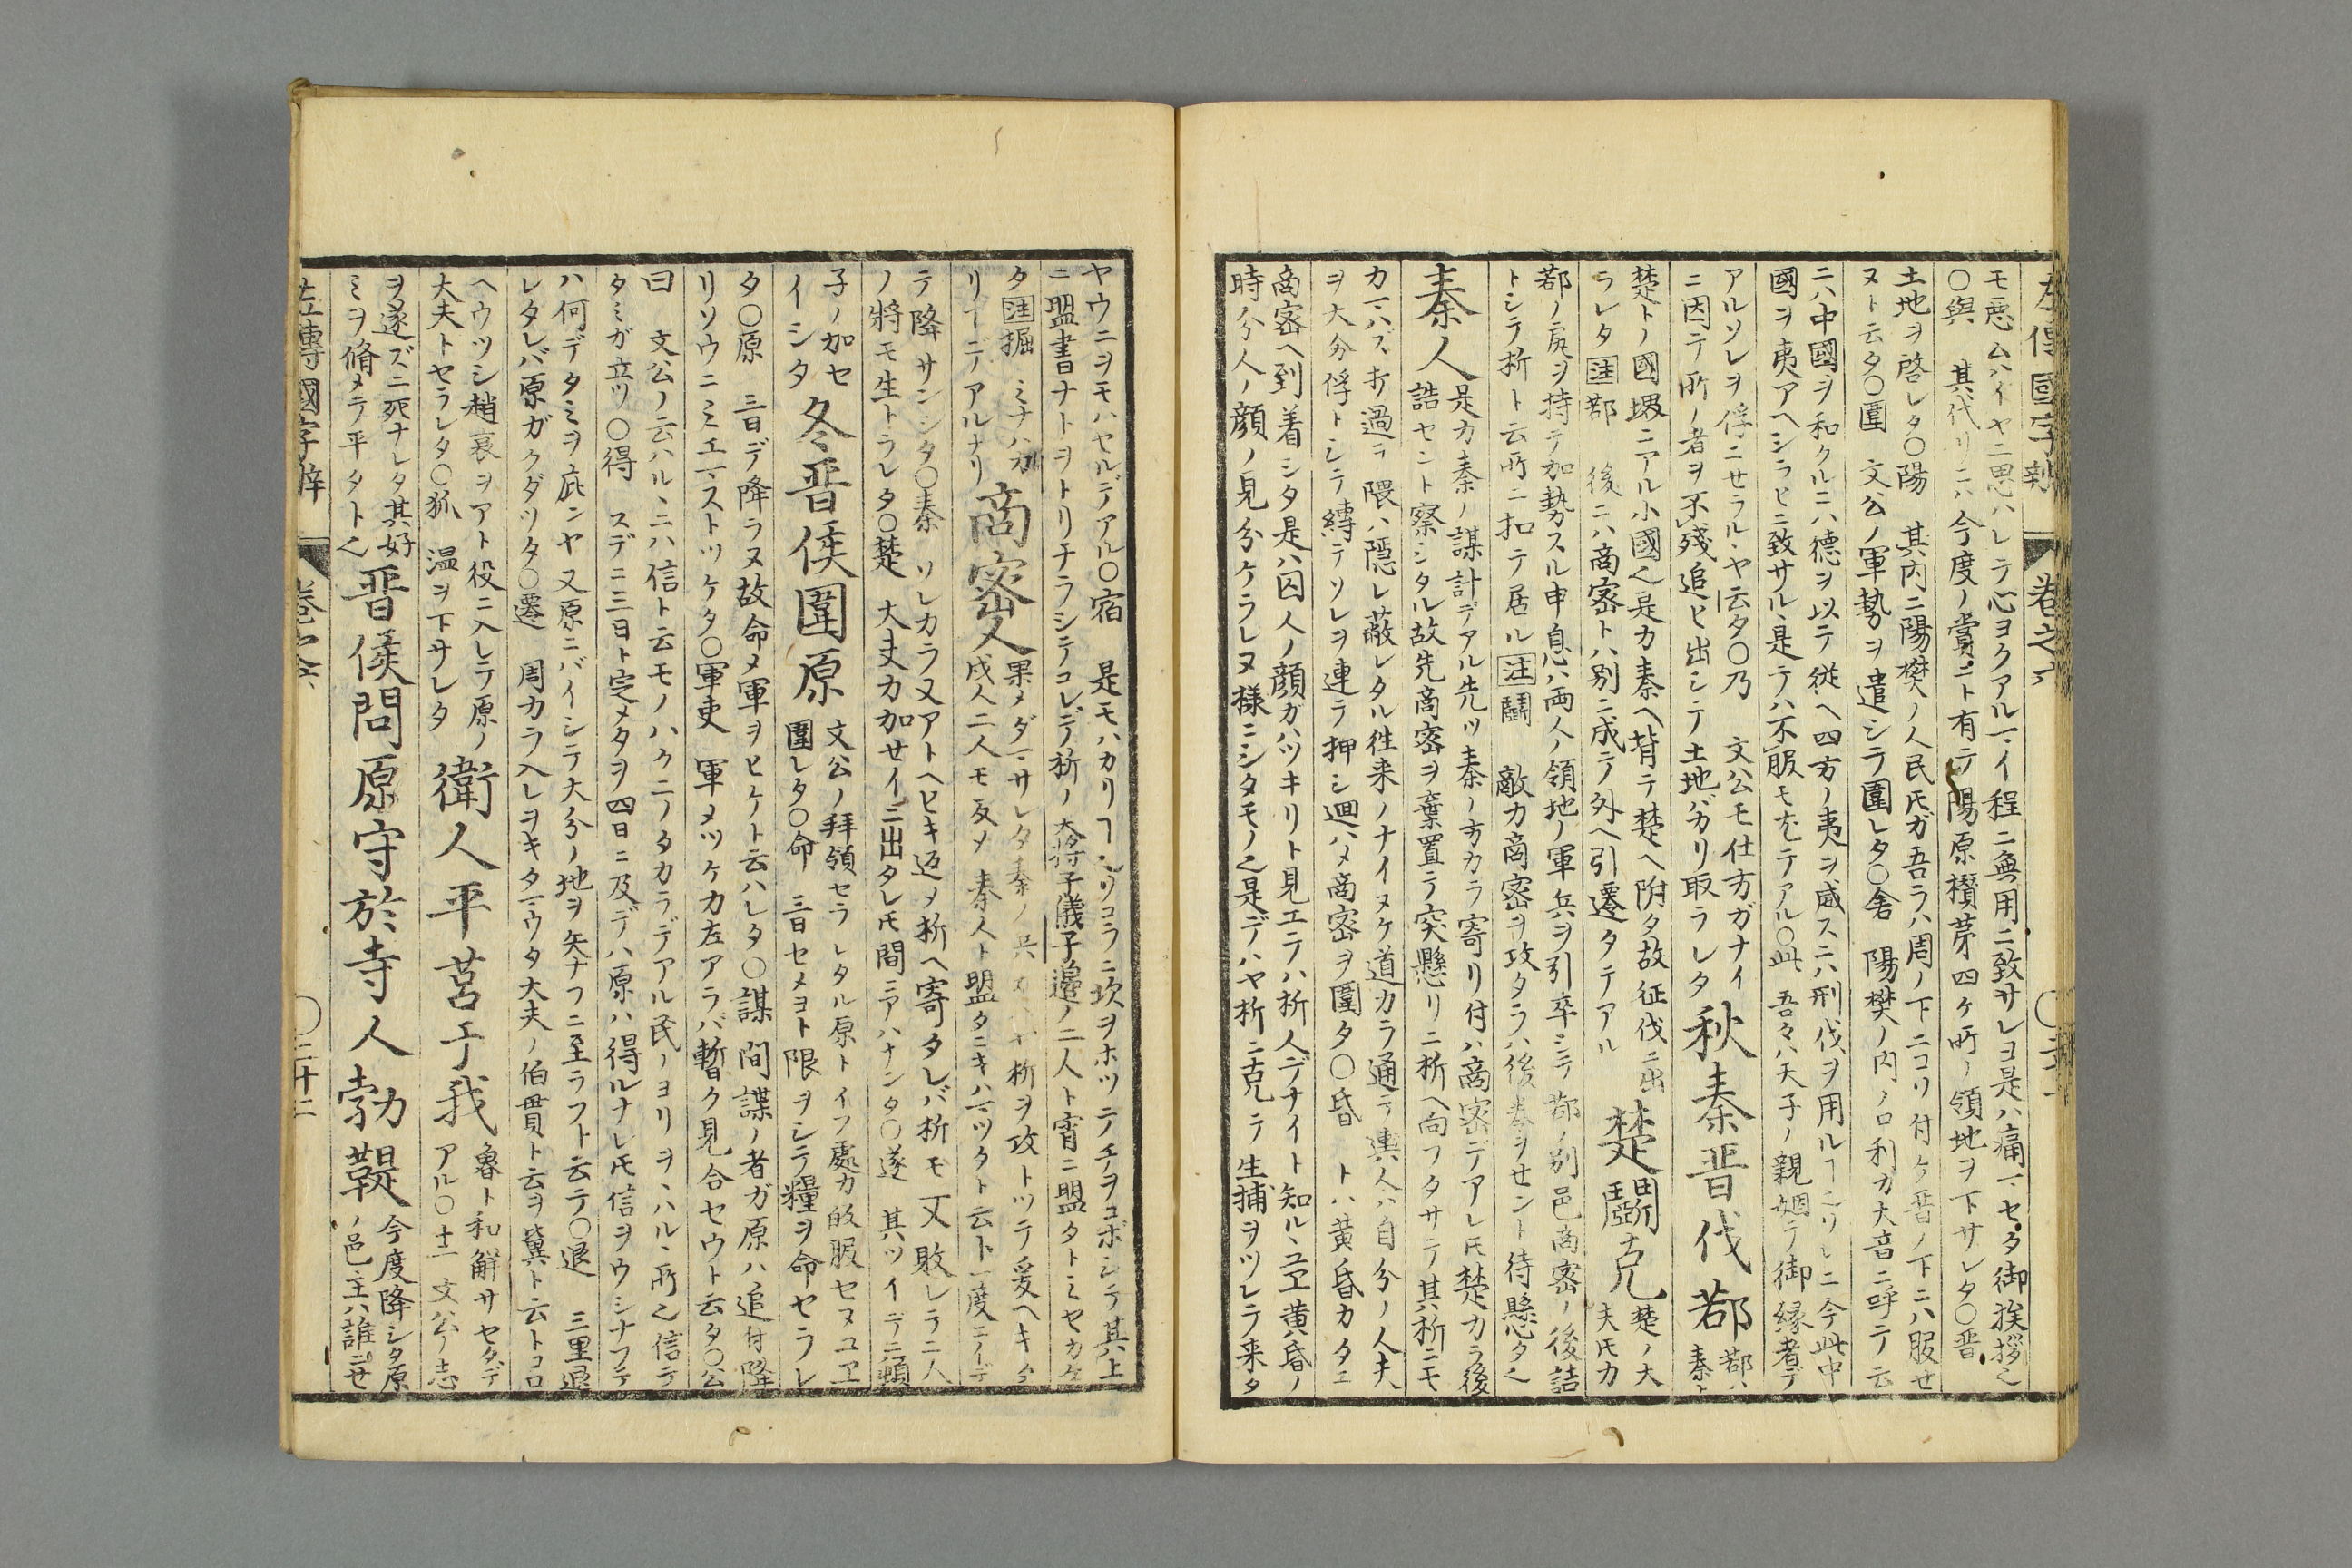 左傳國字辯 巻之六
モ悪ムハイヤニ思ハレテ心ヨクアルマイ程ニ無用ニ致サレヨ是ハ痛マセタ御挨拶也
○與 其代リニハ今度ノ賞ニト有テ陽原欑茅四ケ所ノ領地ヲ下サレタ○晋
土地ヲ啓レタ○陽 其内ニ陽樊ノ人民氏ガ吾ラハ周ノ下ニコリ付ケ晋ノ下ニハ服セ
ヌト云タ○圍 文公ノ軍勢ヲ遣シテ圍レタ○舍 陽樊ノ内ノ口利ガ大音ニ呼ニテ云
ニハ中國ヲ和クルニハ德ヲ以テ従ヘ四方ノ夷ヲ威スニハ刑伐ヲ用ルヿニリレニ今此中
國ヲ夷アヘシラヒニ致サル是テハ不服モ尤テアル○此 吾々ハ天子ノ親姻テ御縁者デ
アルソレヲ俘ニセラルヽヤ云タ○乃 文公モ仕方ガナイ
ニ因テ所ノ者ヲ不殘追ヒ出シテ土地バガリ取ラレタ
秋秦晋伐鄀
鄀ハ
秦ト
楚トノ國堺ニアル小國也是カ秦ヘ背テ楚ヘ附タ故征伐ニ出
ラレタ 注 鄀 後ニハ商密トハ別ニ成テ外ヘ引遷タテアル
楚鬭克
楚ノ大
夫氏カ
鄀ノ尻ヲ持テ加勢スル申息ハ両人ノ領地ノ軍兵ヲ引卒シテ鄀ノ別邑商密ノ後詰
トシテ析ト云所ニ扣テ居ル 注 鬭 敵カ商密ヲ攻タラハ後巻ヲセント待懸タ也
秦人
是カ秦ノ謀計デアル先ツ秦ノ方カラ寄リ付ハ商密デアレ氏楚カラ後
詰セント察シタル故先商密ヲ棄置テ突懸リニ析ヘ向フタサテ其析ニモ
カマハズ打過テ隈ハ隠レ蔽レタル徃来ノナイヌケ道カラ通テ輿人ハ自分ノ人夫
ヲ大分俘トシテ縛テソレヲ連テ押シ廻ハメ商密ヲ圍タ○昏 トハ黄昏カタニ
商密ヘ到着シタ是ハ囚人ノ顔ガハツキリト見エテハ析人デナイト知ルヽユヱ黄昏ノ
時分人ノ顔ノ見分ケラレヌ様ニシタモノ也是デハヤ析ニ克テ生捕ヲツレテ来タ
ヤウニヲモハセルデアル○宿 是モハカリヿニリコラニ坎ヲホツテチヲコボシテ其上
ニ盟書ナトヲトリチラシテコレデ析ノ大将子儀子邉ノ二人ト宵ニ盟タトミセカケ
タ 注 掘 ミナハカ
リヿニデアルナリ
商密人
果メダマサレタ秦ノ兵メハヤ析ヲ攻トツテ爰ヘキタ
戍人二人モ反メ 秦人ト盟タニキハマツタト云ト一度ニノデ
テ降サンシタ○秦 ソレカラ又アトヘヒキ返メ析ヘ寄タレバ析モ又敗レテ二人
ノ將モ生トラレタ○楚 大夫カ加せイニ出タレ氏間ニアハナンタ○遂 其ツイデニ頓
子ノ加セ
イシタ
冬晋侯圍原
文公ノ拜領セラレタル原トイフ處カ的服セヌユヱ
圍レタ○命 三日セメヨト限ヲシテ糧ヲ命セラレ
タ○原 三日デ降ラヌ故命メ軍ヲヒケト云ハレタ○諜 間諜ノ者ガ原ハ追付降
リソウニミエマストツケタ○軍吏 軍メツケカ左アラバ暫ク見合セウト云タ○公
曰 文公ノ云ハルヽニハ信ト云モノハクニノタカラデアル民ノヨリヲヽハル、所也信テ
タミガ立ツ○得 スデニ三日ト定メタヲ四日ニ及デハ原ハ得ルナレ氏信ヲウシナフテ
ハ何デタミヲ庇ンヤ又原ニバイシテ大分ノ地ヲ矢ナフニ至ラフト云テ○退 三里退
レタレバ原ガクダツタ○遷 周カラ入レヲキタマウタ大夫ノ伯貫ト云ヲ冀ト云トコロ
ヘウツシ趙衰ヲアト役ニ入レテ原ノ
大夫トセラレタ○狐 温ヲ下サレタ
衛人平莒于我
魯ト和解サセタデ
アル○十二 文公ノ志
ヲ遂ズニ死ナレタ其好
ミヲ脩メテ平タト也
晋侯問原守於寺人勃鞮
今度降シタ原
ノ邑主ハ誰ニセ
左傳國字辯 巻之六 ○二十二